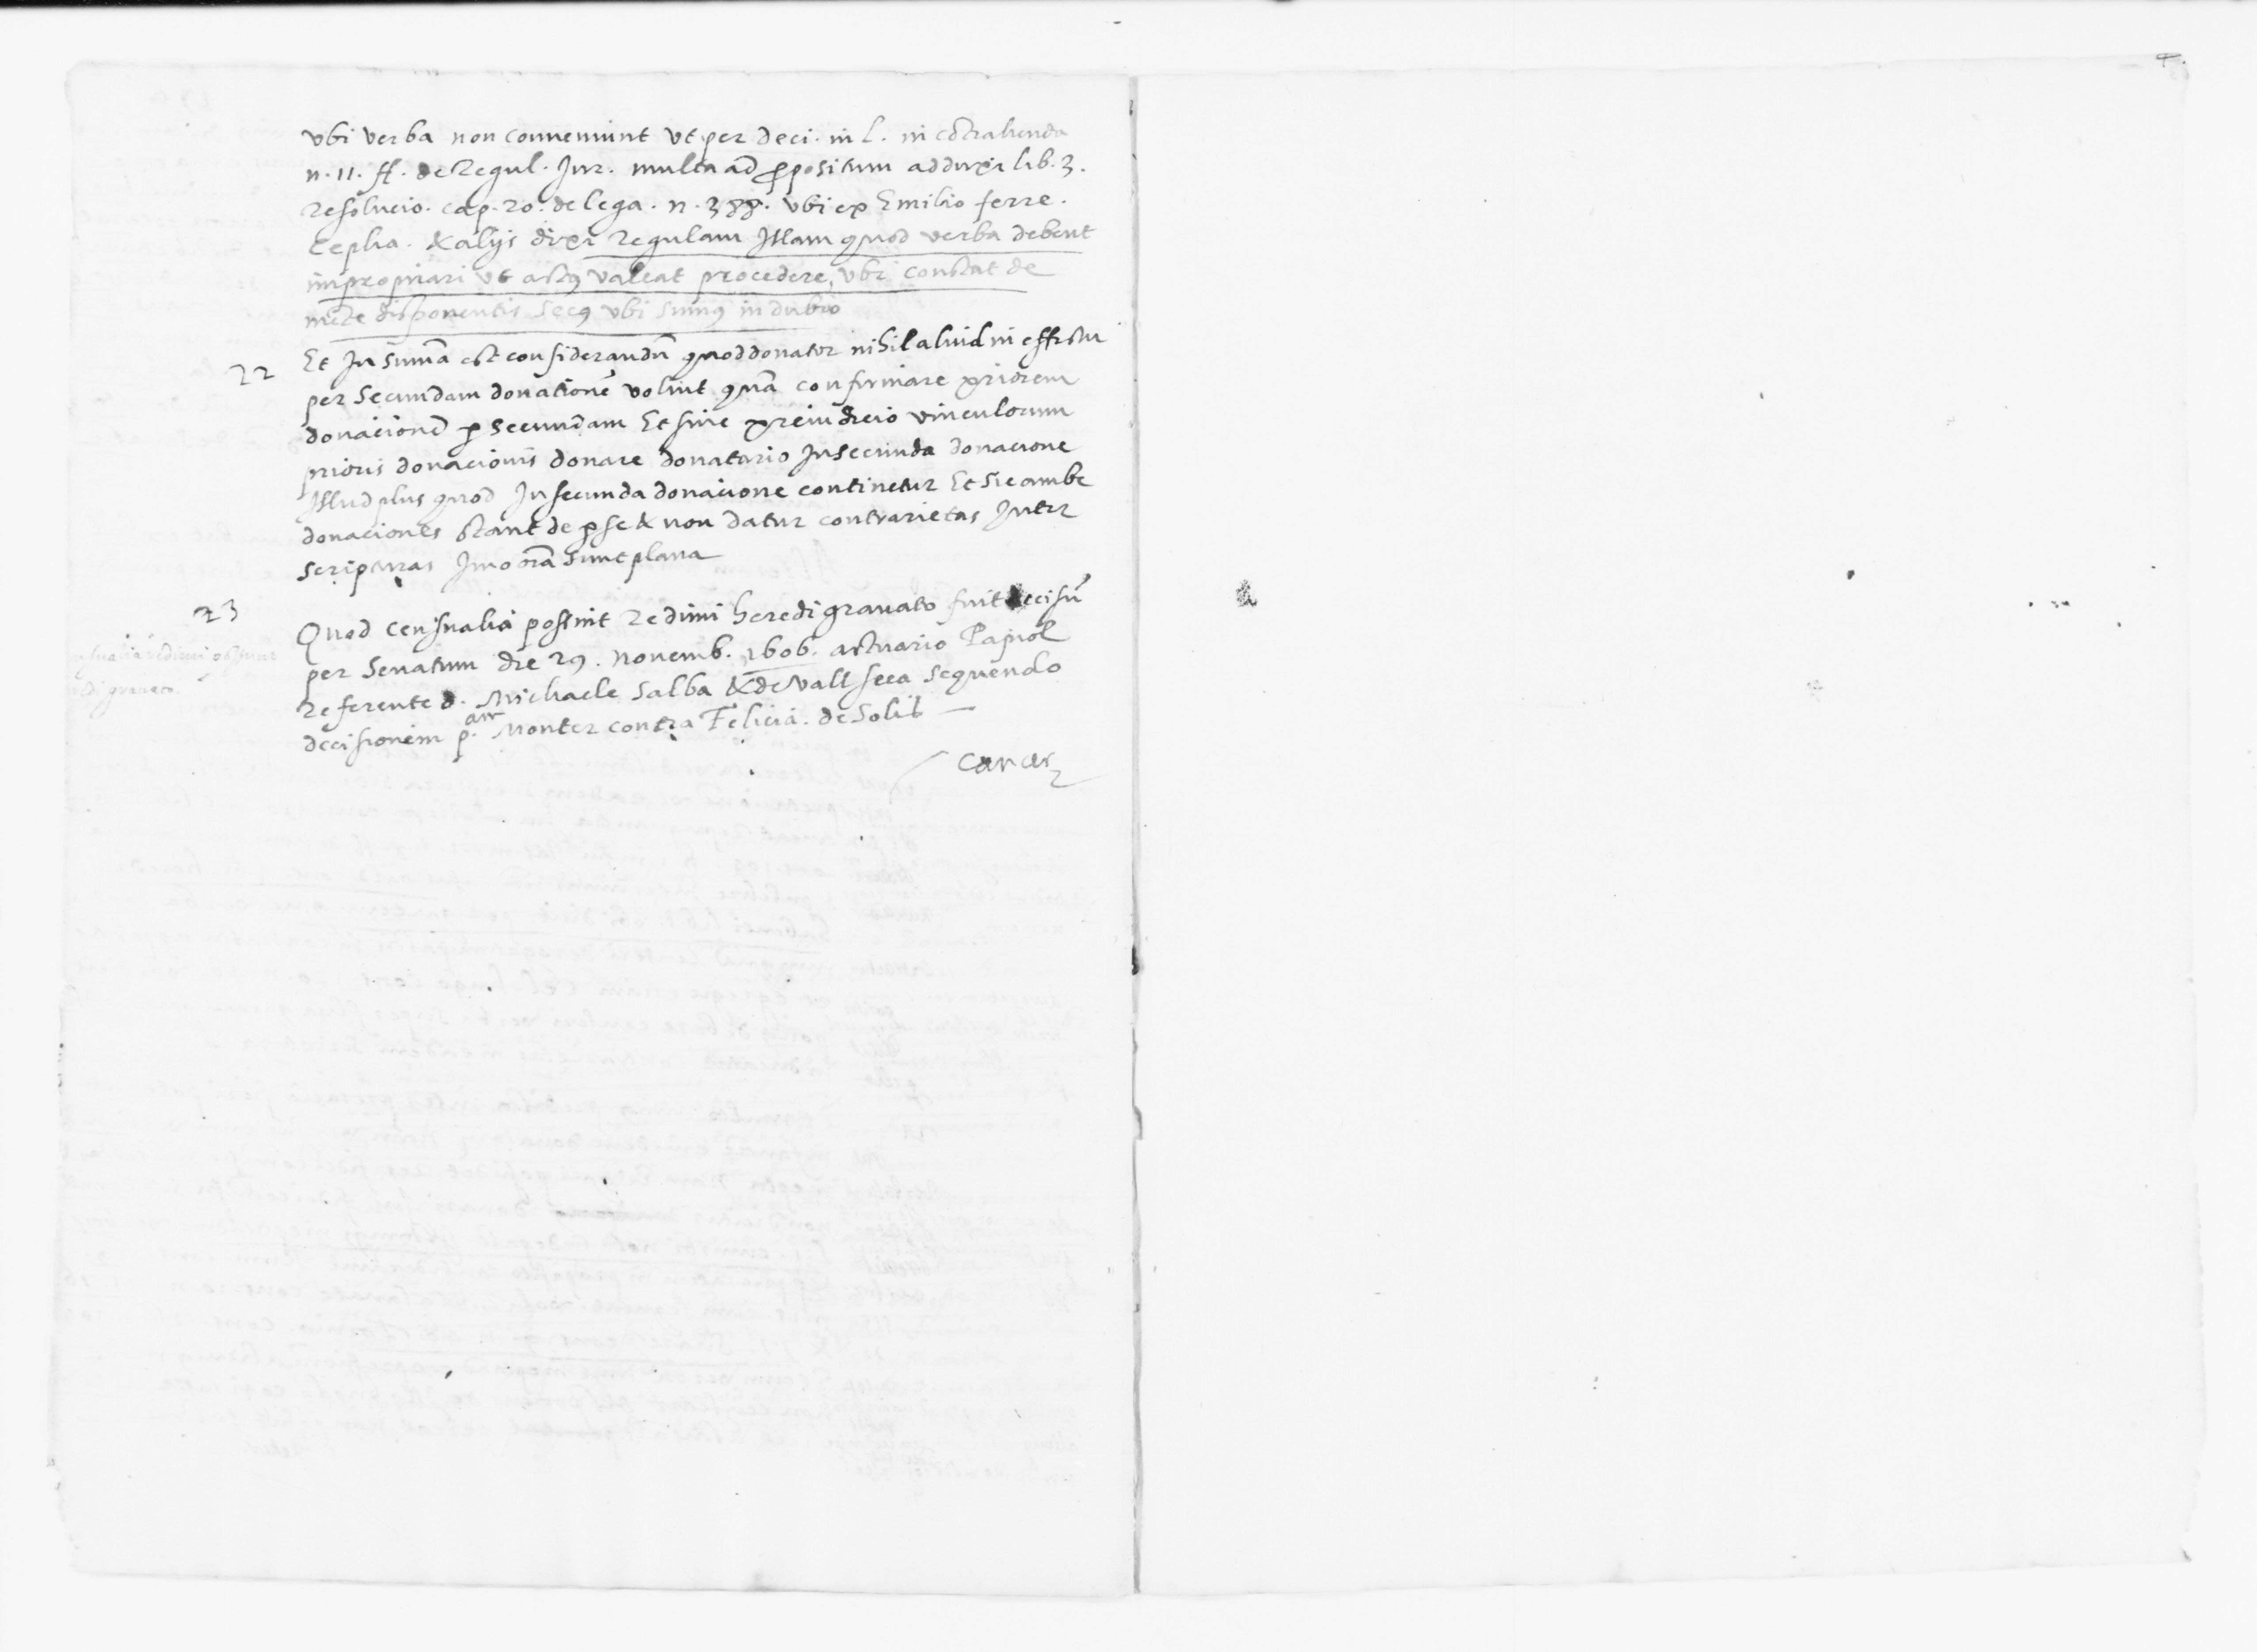 vbi verba non conveniunt vt per deci. in l. in cõtrahenda
n. 11. ff. de Regul. Jur. multa ad ꝓpositum adduxi lib. 3.
resolucio. cap. 20. de lega. n. 388. vbi ex Emilio ferre.
Cepha. & alijs dixi regulam Jllam quod verba debent
impropriari vt actꝰ valeat procedere, vbi constat de
mẽte disponentis secꝰ vbi sumꝰ in dubio
22 Et Jn sumã est considerandũ quod donator nihil aliud in effectu
per secundam donationẽ voluit quã confirmare priorem
donacionẽ ꝑ secundam Et sine preiudicio vinculorum
prioris donacionis donare donatario Jn secunda donacione
Jllud plus quod Jn secunda donacione continetur Et sic ambe
donaciones stant de ꝑ se & non datur contrarietas Jnter
scripturas Jmo oĩa sunt plana
23 Quod censualia possint redimi heredi gravato fuit decisũ
per Senatum die 29. novemb. 1606. actuario Pajnol
referente d. Michaele Salba & de Vallseca sequendo
decisionem p. Monter contra Felicia. de Solis
redimi possunt
gravato.
Cancer